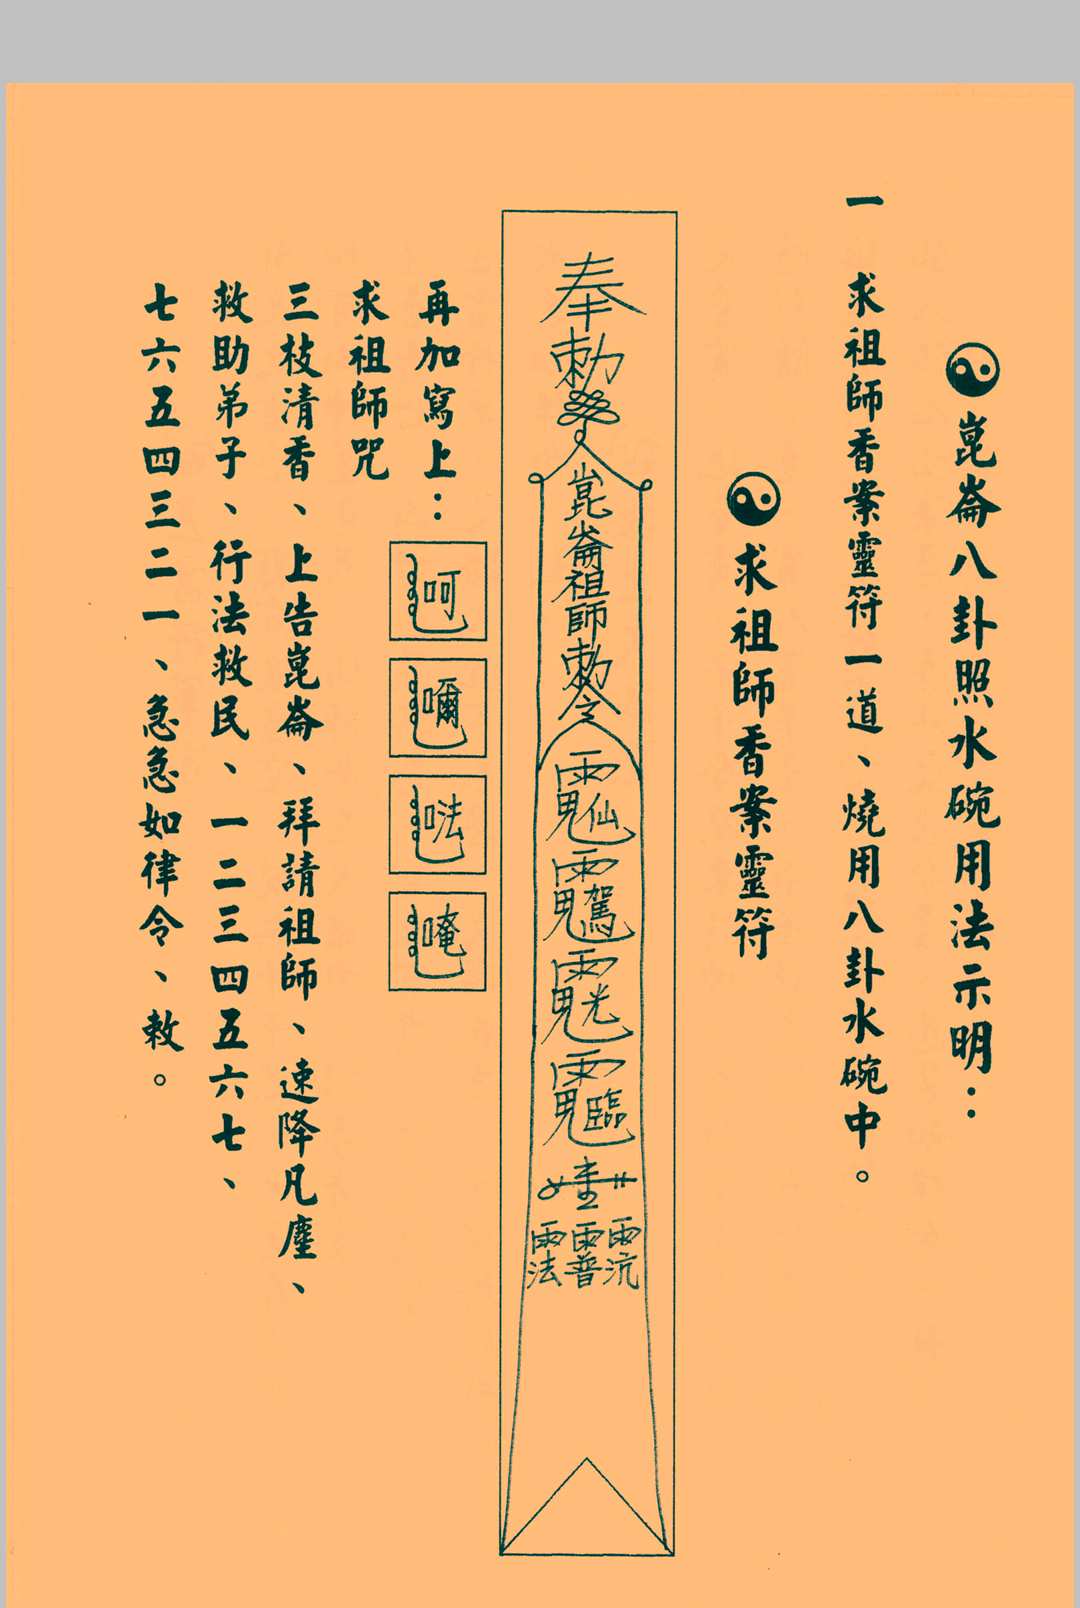 崑崙八卦照水碗用法示明：
一 求祖師香案靈符一道、燒用八卦水碗中。
求祖師香案靈符
奉勅
崑崙祖師勅令
仙
駕
光
臨
再加寫上：
呵
嚩
㳒
唵
求祖師咒
三枝清香、上告崑崙、拜請祖師、速降凡塵、
救助弟子、行法救民、一二三四五六七、
七六五四三二一、急急如律令、敕。